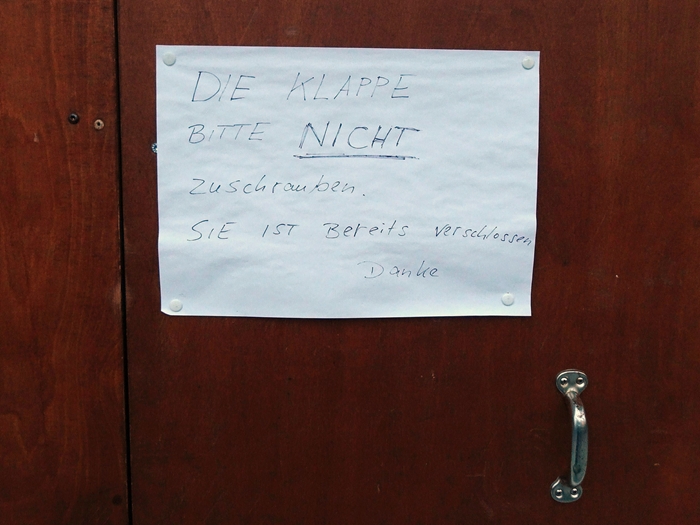 DIE KLAPPE
BITTE NICHT
zuschrauben.
SIE IST Bereits verschlossen
Danke